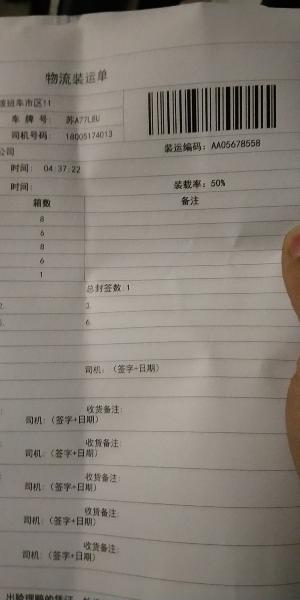 物流装运单
班车市区11
车 牌 号: 苏A77L8U
司机号码: 18005174013
装运编码: AA05678558
公司
时间: 04:37:22
时间:
装载率: 50%
箱数
备注
8
6
8
6
1
总封签数:1
2.
3.
5.
6.
司机: (签字+日期)
收货备注:
司机: (签字+日期)
收货备注:
司机: (签字+日期)
收货备注:
司机: (签字+日期)
收货备注:
司机: (签字+日期)
收货备注:
司机: (签字+日期)